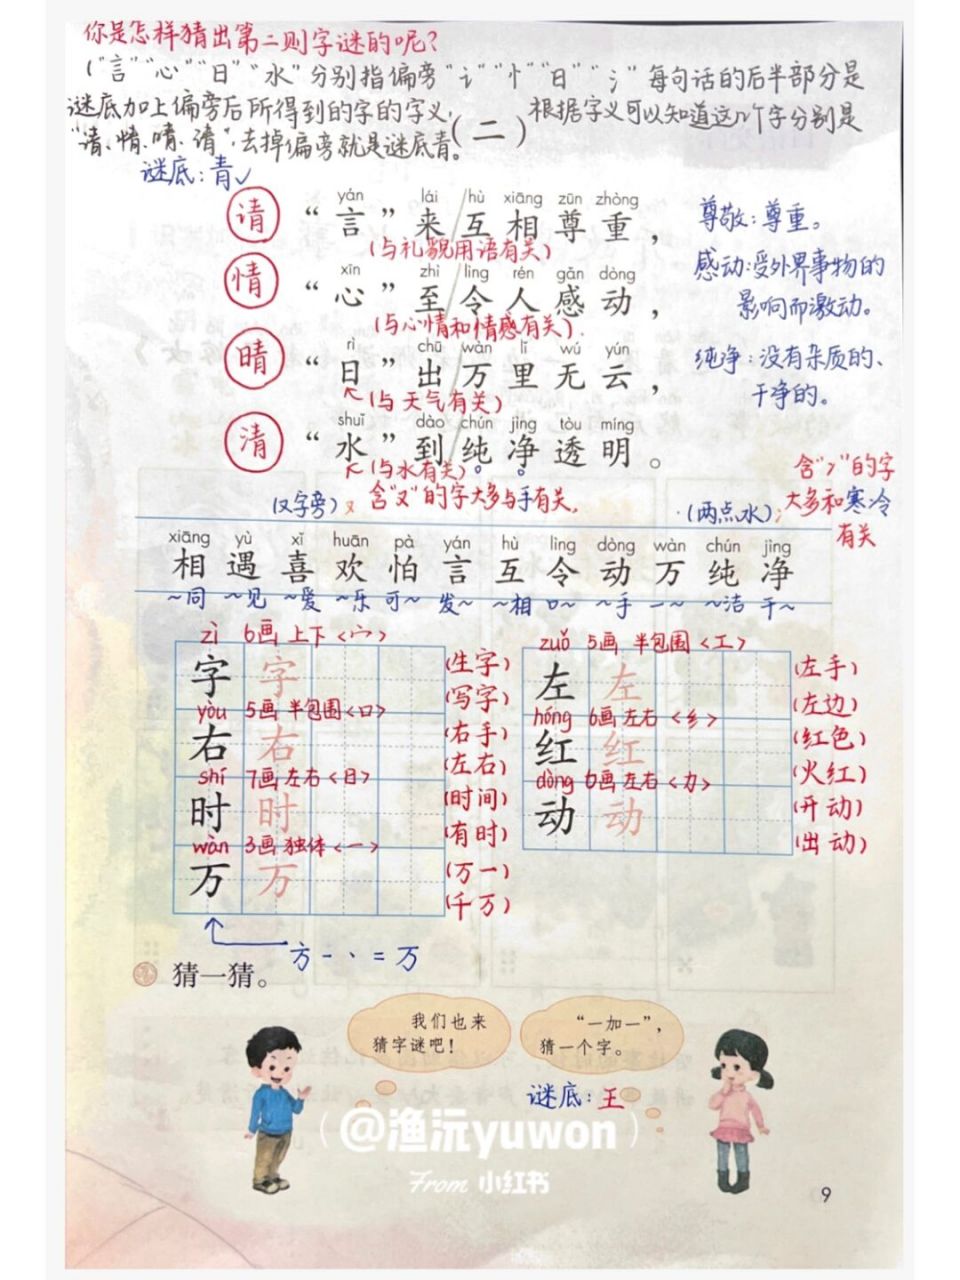 你是怎样猜出第二则字谜的呢？
(“言”“心”“日”“水”分别指偏旁“讠”“忄”“日”“氵”每句话的后半部分是
谜底加上偏旁后所得到的字的字义，根据字义可以知道这几个字分别是
“请、情、晴、清”，去掉偏旁就是谜底青。
(二)
谜底：青✓
yán lái hù xiāng zūn zhòng
请 “言”来/互相尊重，
(与礼貌用语有关)
尊敬：尊重。
xīn zhì lìng rén gǎn dòng
情 “心”至/令人感动，
(与心情和情感有关).
感动：受外界事物的
影响而激动。
rì chū wàn lǐ wú yún
晴 “日”出/万里无云，
(与天气有关)
纯净：没有杂质的、
干净的。
shuǐ dào chún jìng tòu míng
清 “水”到/纯净透明。
(与水有关)
含“冫”的字
大多和寒冷
有关
(又字旁) 又 含“又”的字大多与手有关。
(两点水)冫
xiāng yù xǐ huān pà yán hù lìng dòng wàn chún jìng
相 遇 喜 欢 怕 言 互 令 动 万 纯 净
~同 ~见 ~爱 ~乐 可~ 发~ ~相 口~ ~手 一~ ~洁 干~
zì 6画 上下〈宀〉
字 字
(生字)
(写字)
yòu 5画 半包围〈口〉
右 右
(右手)
(左右)
shí 7画 左右〈日〉
时 时
(时间)
(有时)
wàn 3画 独体〈一〉
万 万
(万一)
(千万)
zuǒ 5画 半包围〈工〉
左 左
(左手)
(左边)
hóng 6画 左右〈纟〉
红 红
(红色)
(火红)
dòng 6画 左右〈力〉
动 动
(开动)
(出动)
方－、＝万
猜一猜。
我们也来
猜字谜吧！
“一加一”，
猜一个字。
谜底：王
(@渔沅yuwon)
From 小红书
9